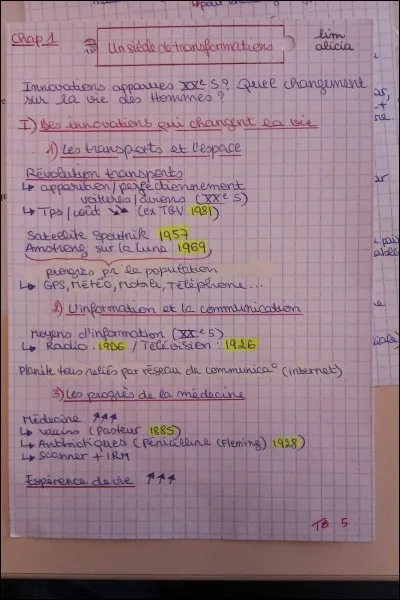 Chap 1
Un siècle de transformations
lim
alicia
Innovations apparues XXe S? Quel changement
sur la vie des Hommes?
I) Des innovations qui changent la vie
1) Les transports et l'espace
Révolution transports
↳ apparition/perfectionnement
voitures/avions (XXe S)
↳ Tps/coût ↘↘ (ex TGV 1981)
Satellite Spoutnik 1957
Amstrong sur la Lune 1969
progrès pr la population
↳ GPS, Météo, Mobile, Téléphone...
2) L'information et la communication
moyens d'information (XXe S)
↳ Radio : 1906 / Télévision : 1926
Planète tous reliés par réseau de communica° (internet)
3) Les progrès de la médecine
Médecine ↗↗↗
↳ vaccins (Pasteur 1885)
↳ Antibiotiques (Pénicilline (Fleming) 1928)
↳ Scanner + IRM
Espérance de vie ↗↗↗
TB 5